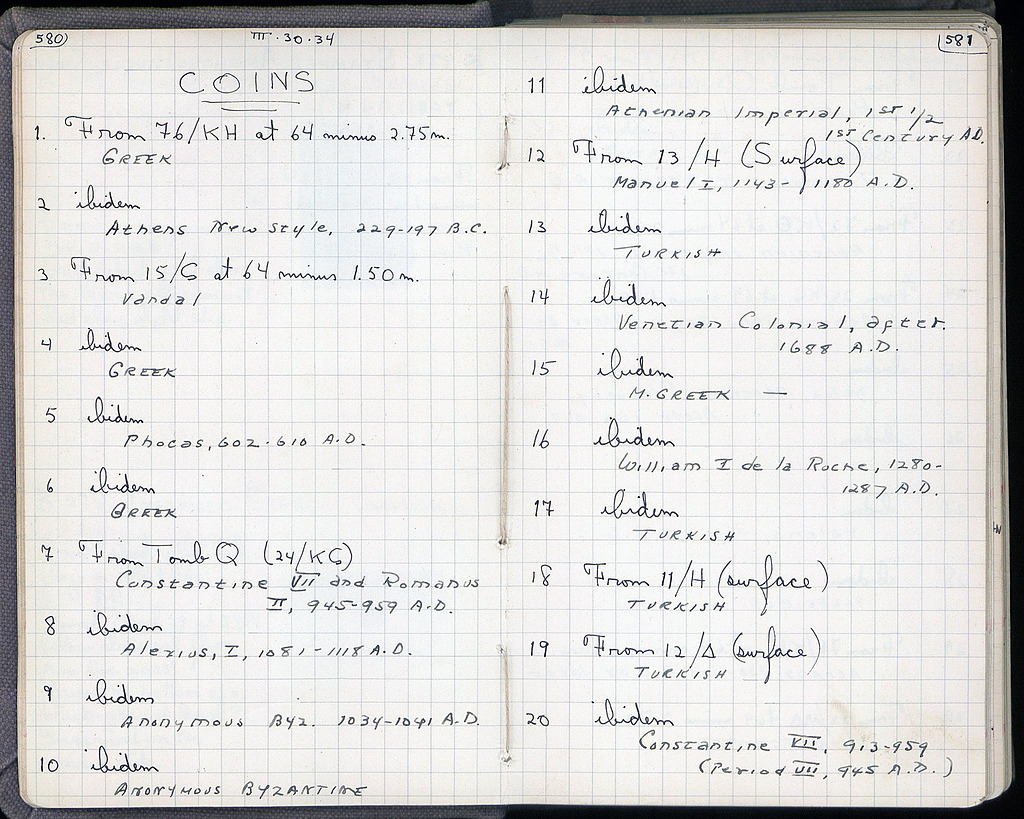 580
III·30·34
COINS
1. From 76/KH at 64 minus 2.75m.
GREEK
2 ibidem
Athens New Style, 229-197 B.C.
3 From 15/S at 64 minus 1.50m.
Vandal
4 ibidem
GREEK
5 ibidem
Phocas, 602-610 A.D.
6 ibidem
GREEK
7 From Tomb Q (24/KS)
Constantine VII and Romanus
II, 945-959 A.D.
8 ibidem
Alexius, I, 1081-1118 A.D.
9 ibidem
Anonymous Byz. 1034-1041 A.D.
10 ibidem
ANONYMOUS BYZANTINE
581
11 ibidem
Athenian Imperial, 1st 1/2
1st Century A.D.
12 From 13/H (Surface)
Manuel I, 1143-1180 A.D.
13 ibidem
TURKISH
14 ibidem
Venetian Colonial, after
1688 A.D.
15 ibidem
M. GREEK —
16 ibidem
William I de la Roche, 1280-
1287 A.D.
17 ibidem
TURKISH
18 From 11/H (surface)
TURKISH
19 From 12/Δ (surface)
TURKISH
20 ibidem
Constantine VII, 913-959
(Period VII, 945 A.D.)